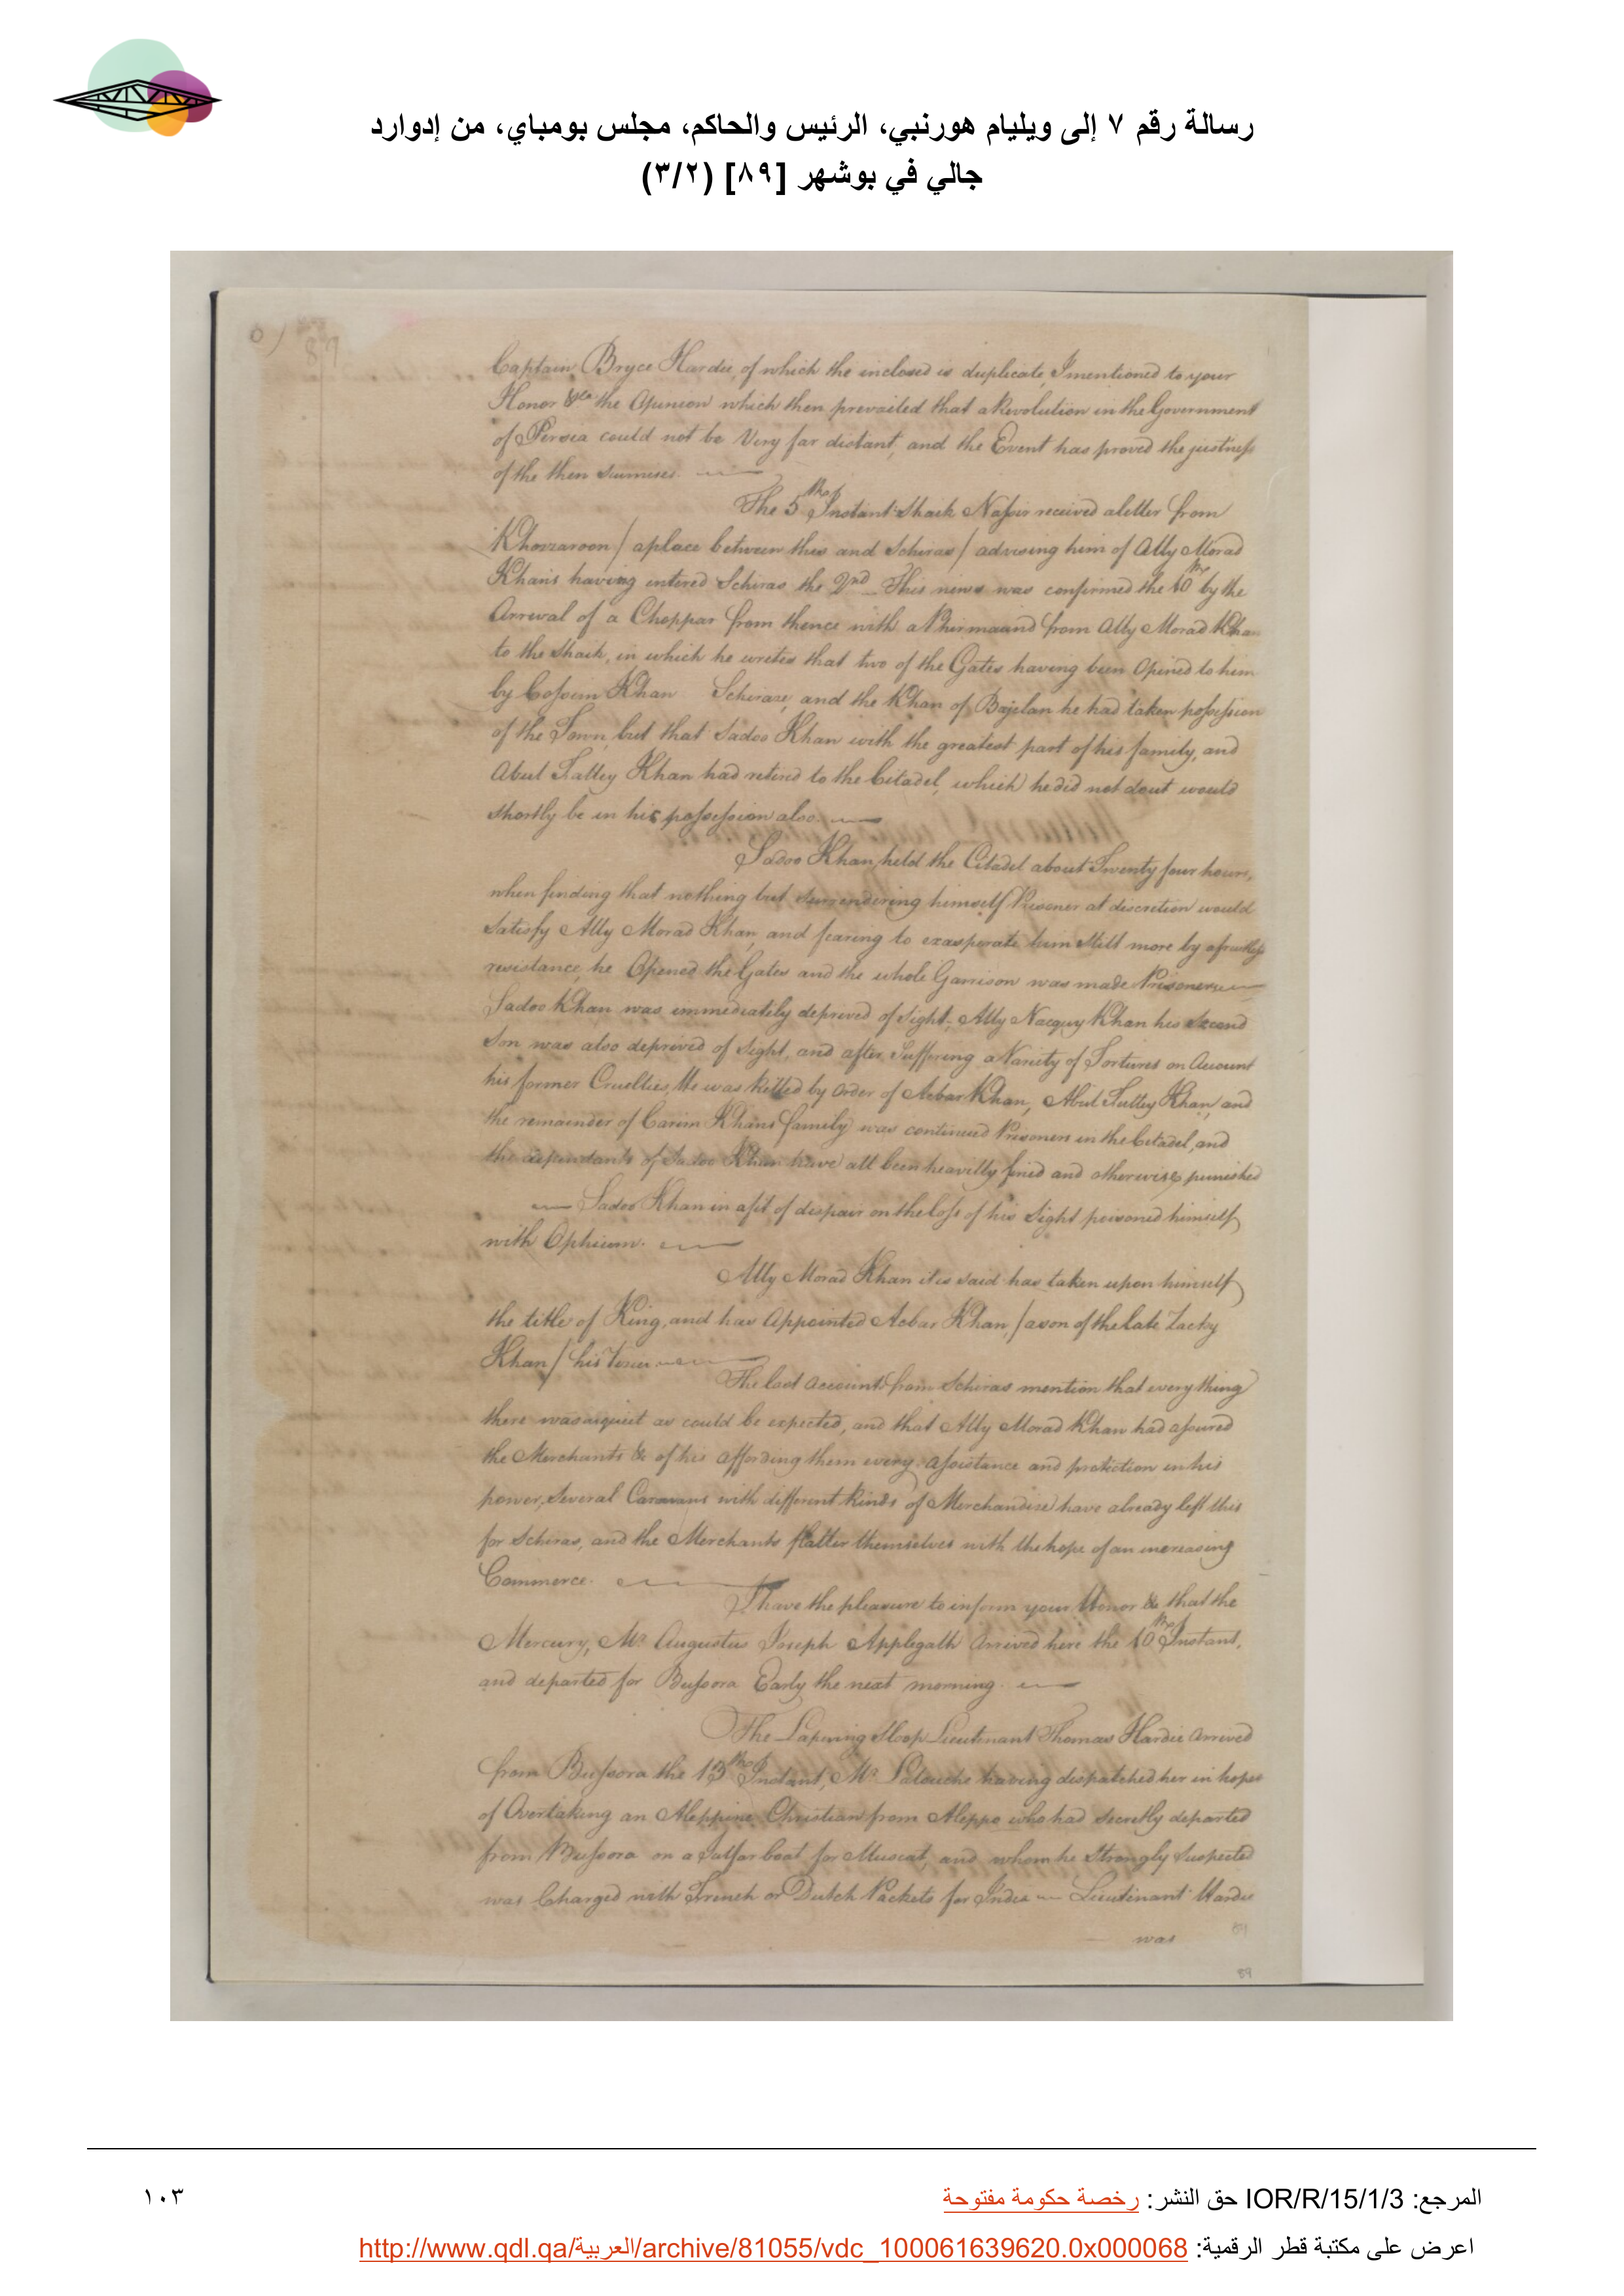 رسالة رقم ٧ إلى ويليام هورنبي، الرئيس والحاكم، مجلس بومباي، من إدوارد
جالي في بوشهر [٨٩] (٣/٢)
89
Captain Bryce Hardie, of which the inclosed is duplicate, I mentioned to your
Honor &ca the Opinion which then prevailed that a Revolution in the Government
of Persia could not be Very far distant, and the Event has proved the justness
of the then surmises.
The 5th of Instant Shaik Nassir received a letter from
Khowzaroon / a place between this and Schiras / advising him of Ally Morad
Khan's having entered Schiras the 2nd This news was confirmed the 10th by the
Arrival of a Choppar from thence with a Phirmaund from Ally Morad Khan
to the Shaik, in which he writes that two of the Gates having been Opened to him
by Cossim Khan Schiraze, and the Khan of Bajelan he had taken possession
of the Town, but that Sadoo Khan with the greatest part of his family, and
Abul Fattey Khan had retired to the Citadel, which he did not dout would
shortly be in his possession also.
Sadoo Khan, held the Citadel about Twenty four hours,
when finding that nothing but surrendering himself Prisoner at discretion would
Satisfy Ally Morad Khan, and fearing to exasperate him Still more by a fruitless
resistance, he Opened the Gates and the whole Garrison was made Prisoners
Sadoo Khan was immediately deprived of Sight. Ally Nacquy Khan his second
Son was also deprived of Sight, and after Suffering a Variety of Tortures on Account
his former Cruelties, He was killed by Order of Acbar Khan, Abul Futtey Khan, and
the remainder of Carim Khans family was continued Prisoners in the Citadel, and
the dependants of Sadoo Khan have all been heavilly fined and otherwise punished
Sadoo Khan in a fit of despair on the loss of his Sight poisoned himself
with Ophium.
Ally Morad Khan it is said has taken upon himself
the title of King, and has Appointed Acbar Khan, / a son of the late Zacky
Khan / his Vizier
The last Accounts from Schiras mention that every thing
there was as quiet as could be expected, and that Ally Morad Khan had assured
the Merchants &c of his affording them every assistance and protection in his
power, Several Caravans with different kinds of Merchandize have already left this
for Schiras, and the Merchants flatter themselves with the hope of an increasing
Commerce.
I have the pleasure to inform your Honor &c that the
Mercury, Mr Augustus Joseph Applegath Arrived here the 10th of Instant,
and departed for Bussora Early the next morning.
The Lapwing Sloop Lieutenant Thomas Hardie Arrived
from Bussora the 13th of Instant, Mr Latouche having dispatched her in hopes
of Overtaking an Aleppine Christian from Aleppo who had secretly departed
from Bussora on a boat for Muscat, and whom he Strongly Suspected
was Charged with French or Dutch Packets for India Lieutenant Hardie
was
89
89
المرجع: IOR/R/15/1/3 حق النشر: رخصة حكومة مفتوحة
١٠٣
اعرض على مكتبة قطر الرقمية: http://www.qdl.qa/العربية/archive/81055/vdc_100061639620.0x000068